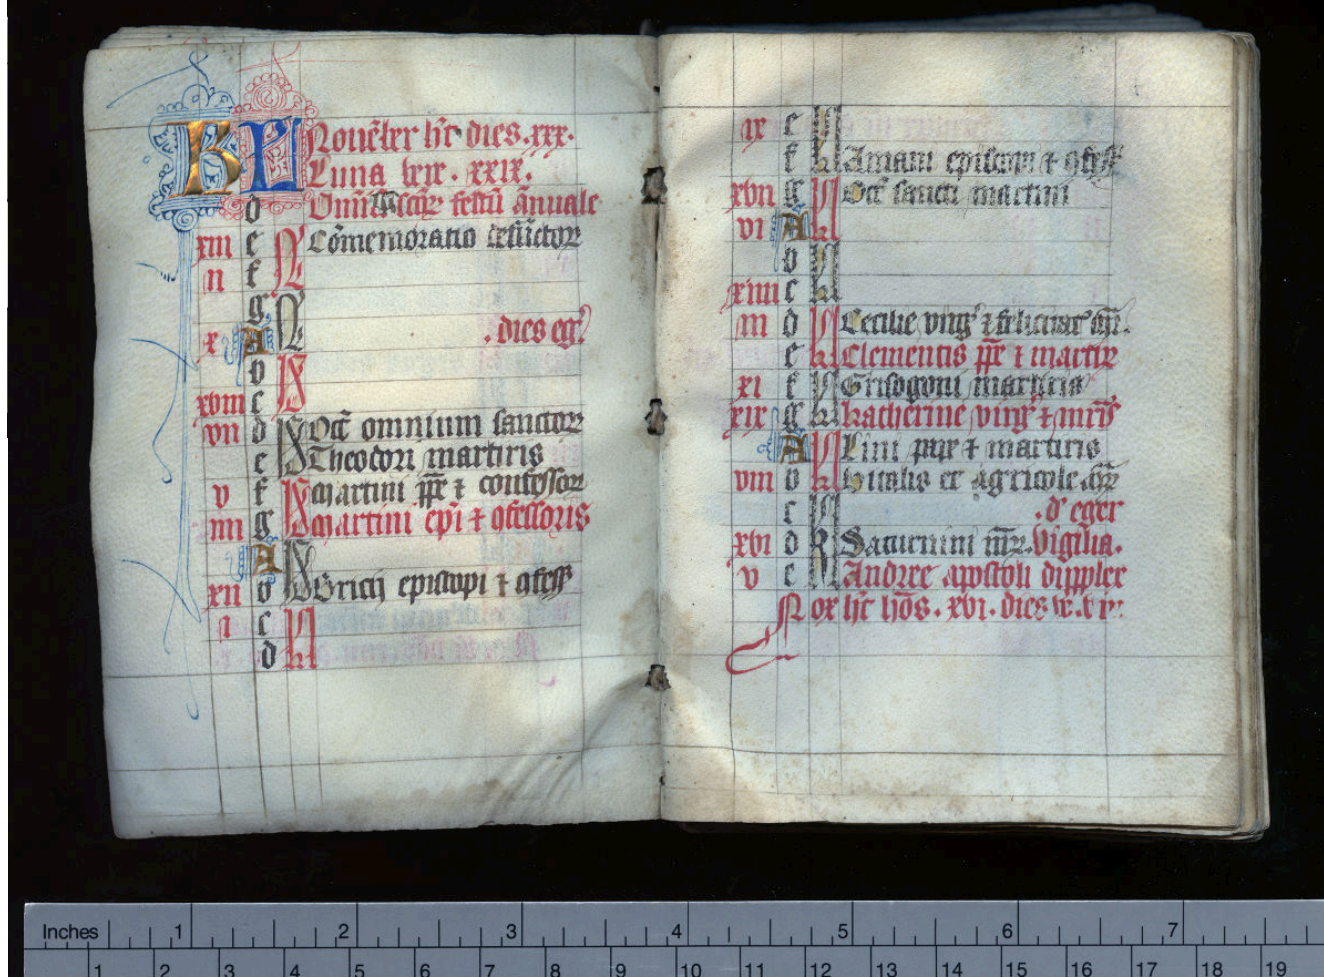 KL Nouēber hr̄ dies .xxx.
Luna vero .xxix.
d Om̄i scōꝝ festū ānuale
xiii e N Cōmemoratio defūctoꝝ
ii f N
g
x A N .dies eg.
b
xviii c N
vii d N Oct̄ omnium sanctoꝝ
e Theodori martiris
v f N martini pp̄e ⁊ confessoꝝ
iiii g martini ep̄i ⁊ ꝯfessoris
A N
xii b Bricij episcopi ⁊ ꝯfess
i c N
d kl
ix e kl
f kl Amani episcopi ⁊ ꝯfess
xvii g kl Oct̄ sancti martini
vi A kl
b kl
xiiii c kl
iii d kl Cecilie virḡ ⁊ felicitat̄ m̄.
e kl Clementis pp̄e ⁊ martir
xi f kl Grisogoni martiris
xix g kl katherine virḡ ⁊ mr̄is
A kl Lini pape ⁊ martiris
viii b kl vitalis et agricole m̄ꝝ
c kl .d' eger
xvi d kl Saturnini m̄ꝝ. vigilia.
v e kl Andree apostoli duppler
Nox hr̄ hōs. xvi. dies
Inches 1 2 3 4 5 6 7
1 2 3 4 5 6 7 8 9 10 11 12 13 14 15 16 17 18 19